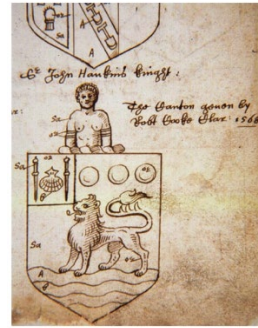 A
Sr John Hawkins knight:
The Canton geven by
Robt Cooke Clar. 1568
Sa
Sa
or
Sa
A